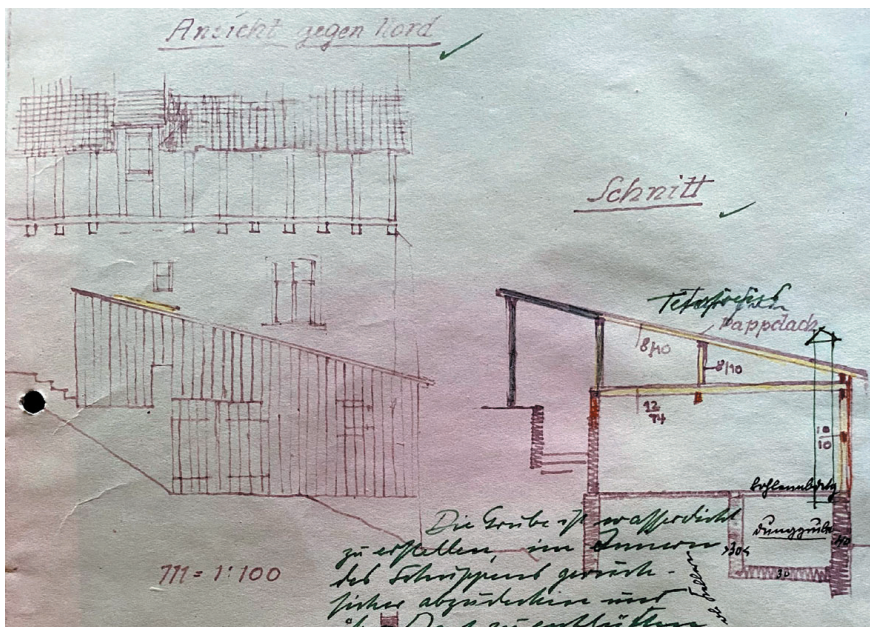 Ansicht gegen Nord
Schnitt
Pappdach
8/10
8/10
12
14
10
10
Dunggrube
30
30
40
M = 1:100
Die Grube ist wasserdicht
zu erstellen, im Innern
des Schuppens geruch-
sicher abzudecken und
über Dach zu entlüften